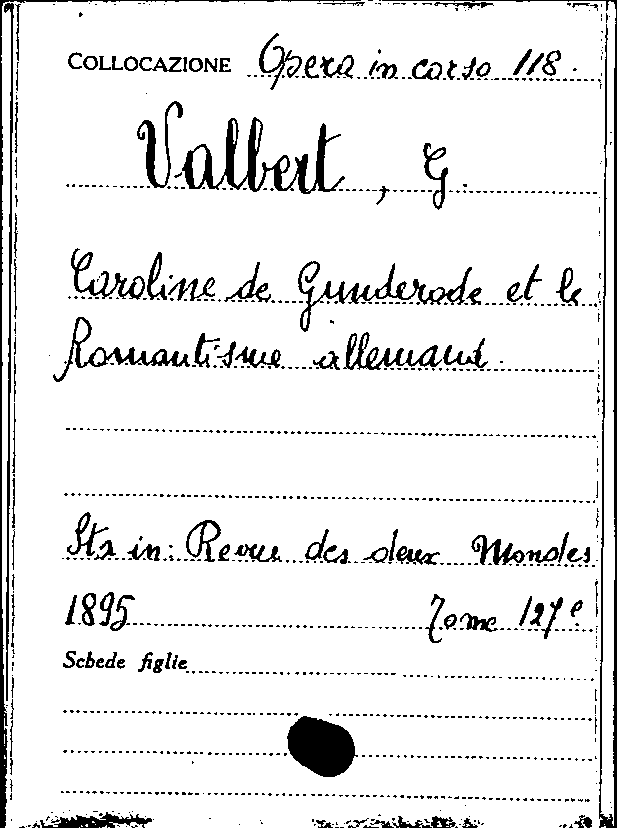 COLLOCAZIONE Opera in corso 118.
Valbert, G.
Caroline de Gunderode et le
Romantisme allemand.
Sta in: Revue des deux Mondes
1895 Tome 127e
Schede figlie